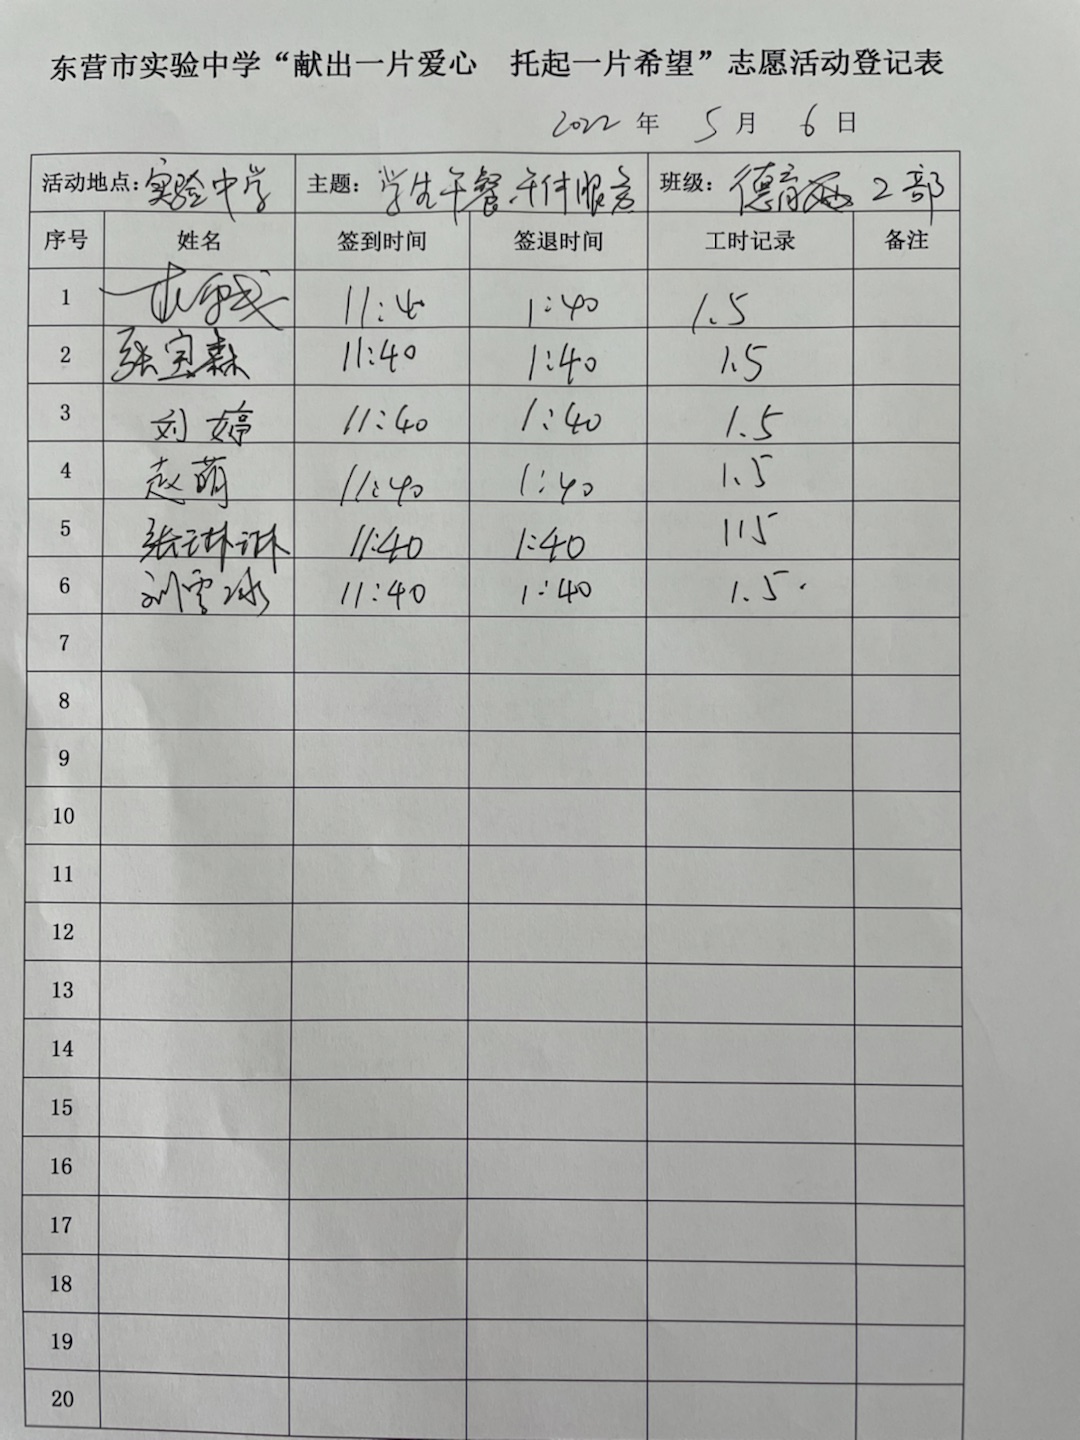 东营市实验中学“献出一片爱心 托起一片希望”志愿活动登记表
2022 年 5 月 6 日
活动地点: 实验中学 主题: 学生午餐午休服务 班级: 德育处 2部
序号 姓名 签到时间 签退时间 工时记录 备注
1 11:40 1:40 1.5
2 张宝森 11:40 1:40 1.5
3 刘婷 11:40 1:40 1.5
4 赵萌 11:40 1:40 1.5
5 张琳琳 11:40 1:40 115
6 刘雪冰 11:40 1:40 1.5.
7
8
9
10
11
12
13
14
15
16
17
18
19
20